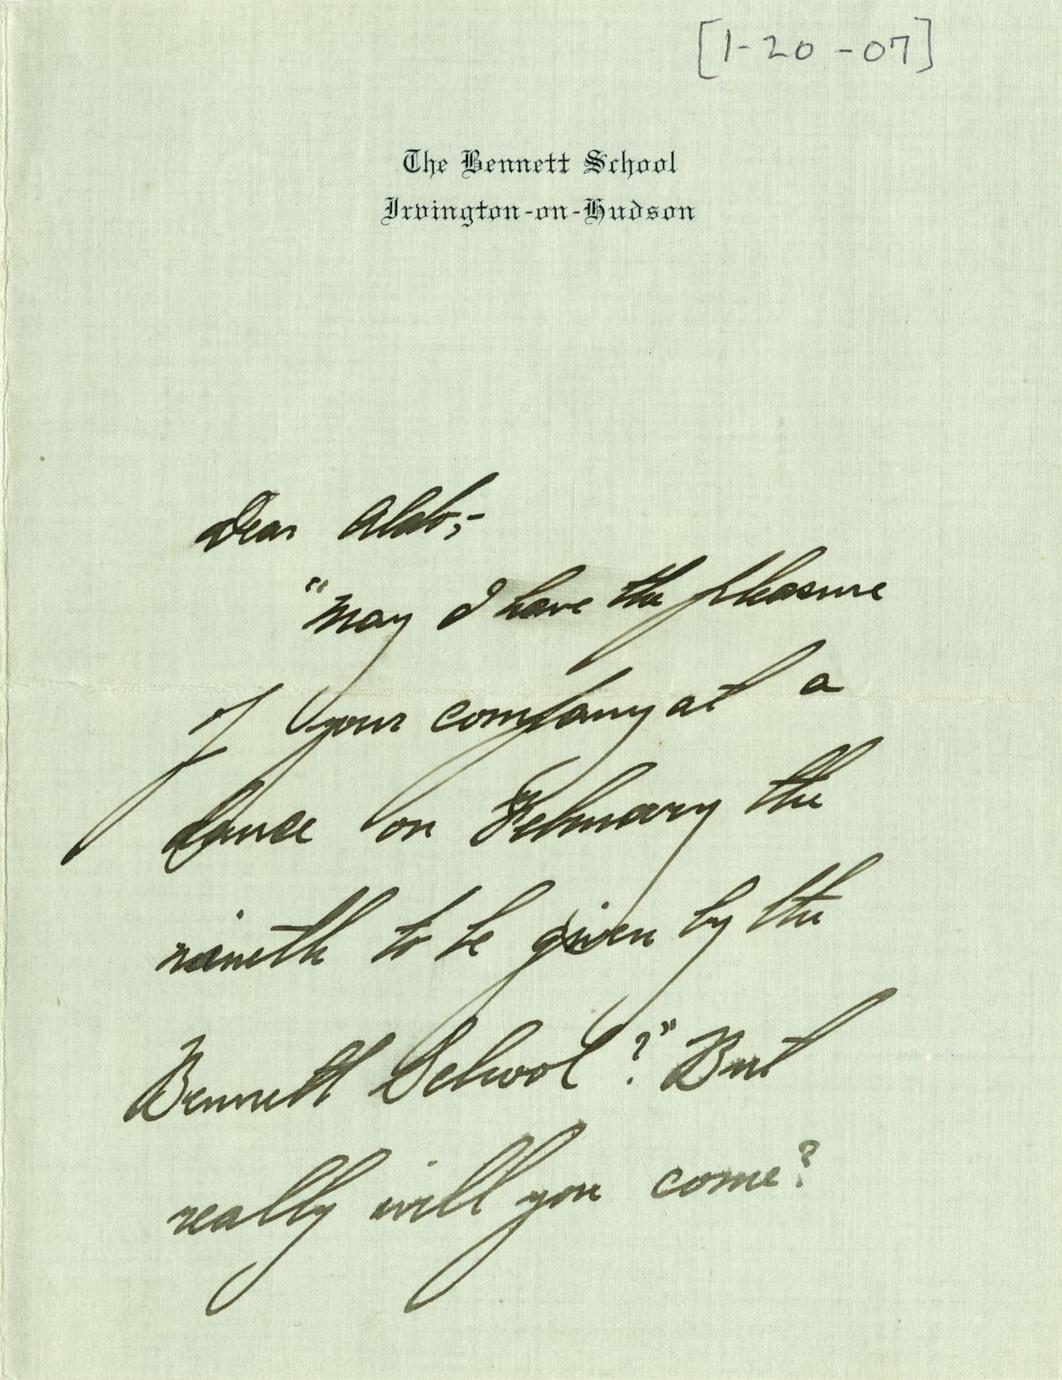 [1-20-07]
The Bennett School
Irvington-on-Hudson
Dear Aldo;-
"May I have the pleasure
of your company at a
dance on February the
nineth to be given by the
Bennett School?" But
really will you come?